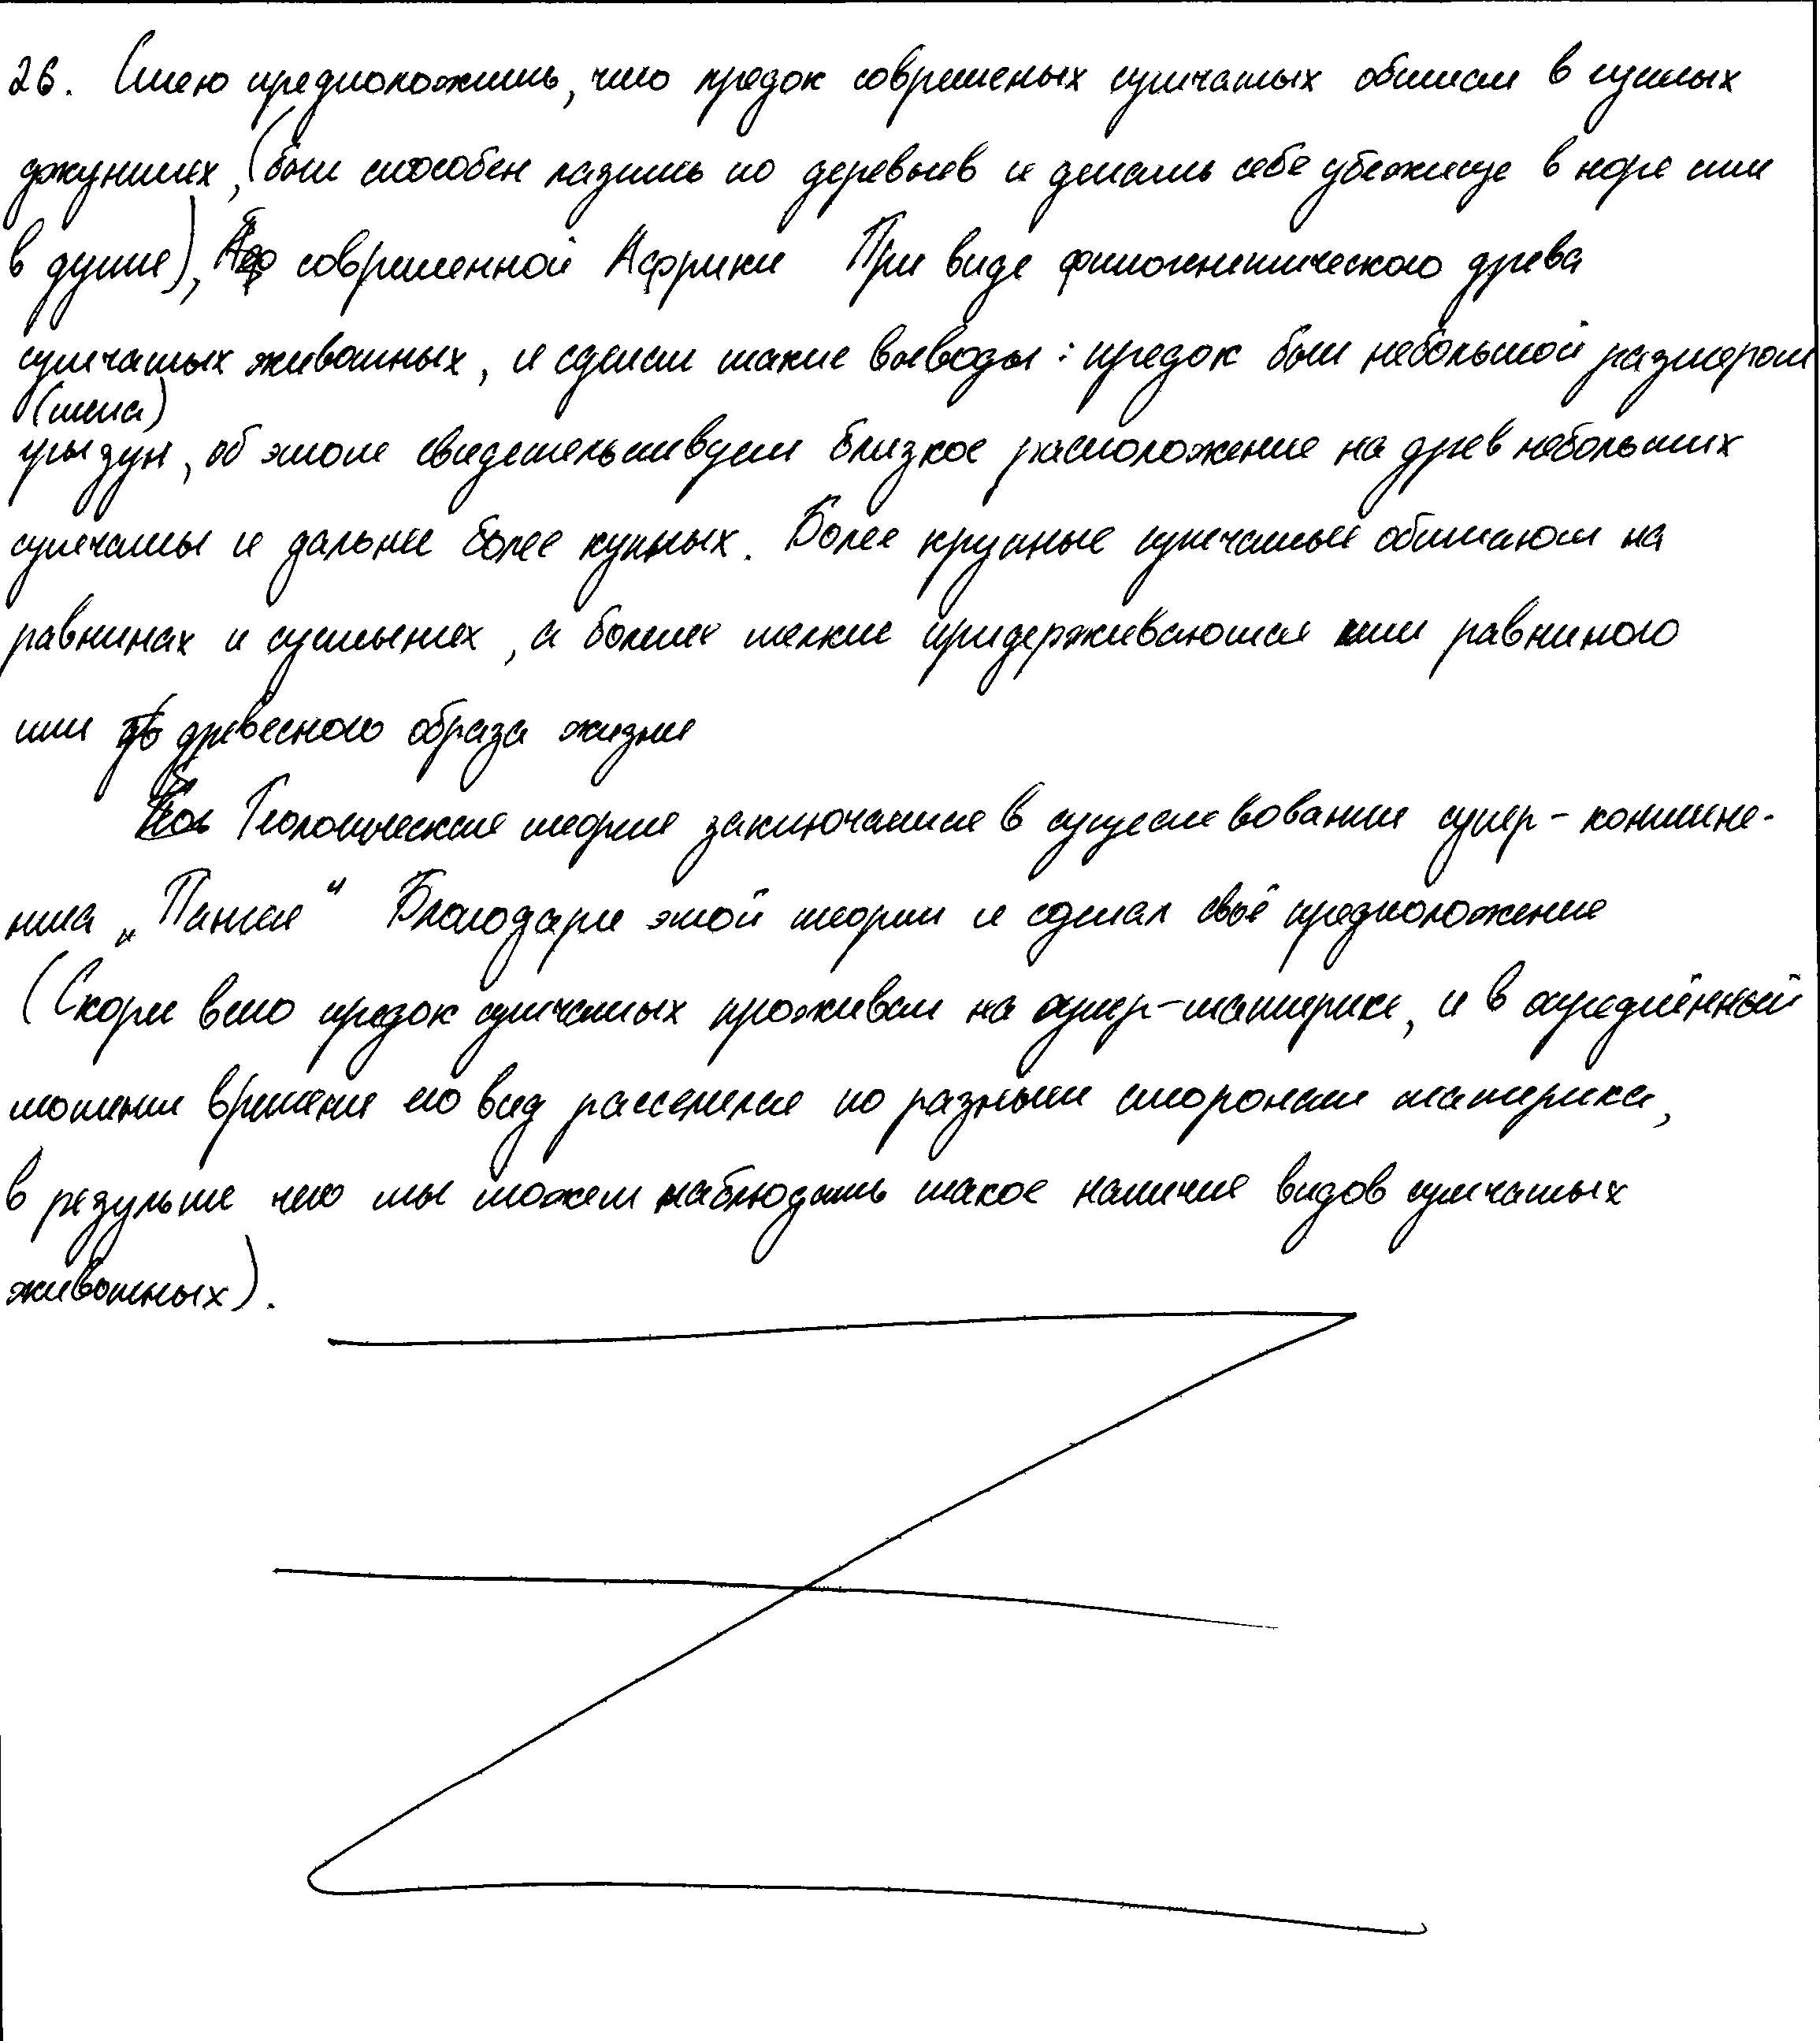 26. Смею предположить, что предок современых сумчатых обитал в густых
джунглях, (был способен лазить по деревьев и делать себе убежище в норе или
в дупле), современной Африки При виде филогенитического древа
сумчатых животных, я сделал такие выводы: предок был небольшой размером
(типа)
грызун, об этом свидетельствует близкое расположение на древ небольших
сумчаты и дальне более купных. Более крупные сумчатые обитают на
равнинах и сустынях, а более мелкие придерживаются или равниного
или древесного образа жизни
Геологическая теория заключатся в существовании супер-контине-
нта „Пангея" Благодаря этой теории я сделал своё предположение
(Скоре всего предок сумчатых проживал на супер-материке, и в определённый
момент времени его вид расселился по разным сторонам материка,
в результе чего мы можем наблюдать такое наличие видов сумчатых
животных).